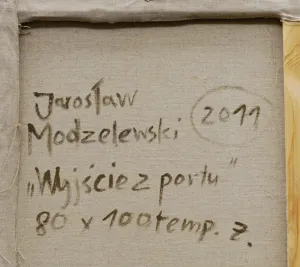 Jarosław
Modzelewski 2011
„Wyjście z portu”
80 x 100 temp. ż.